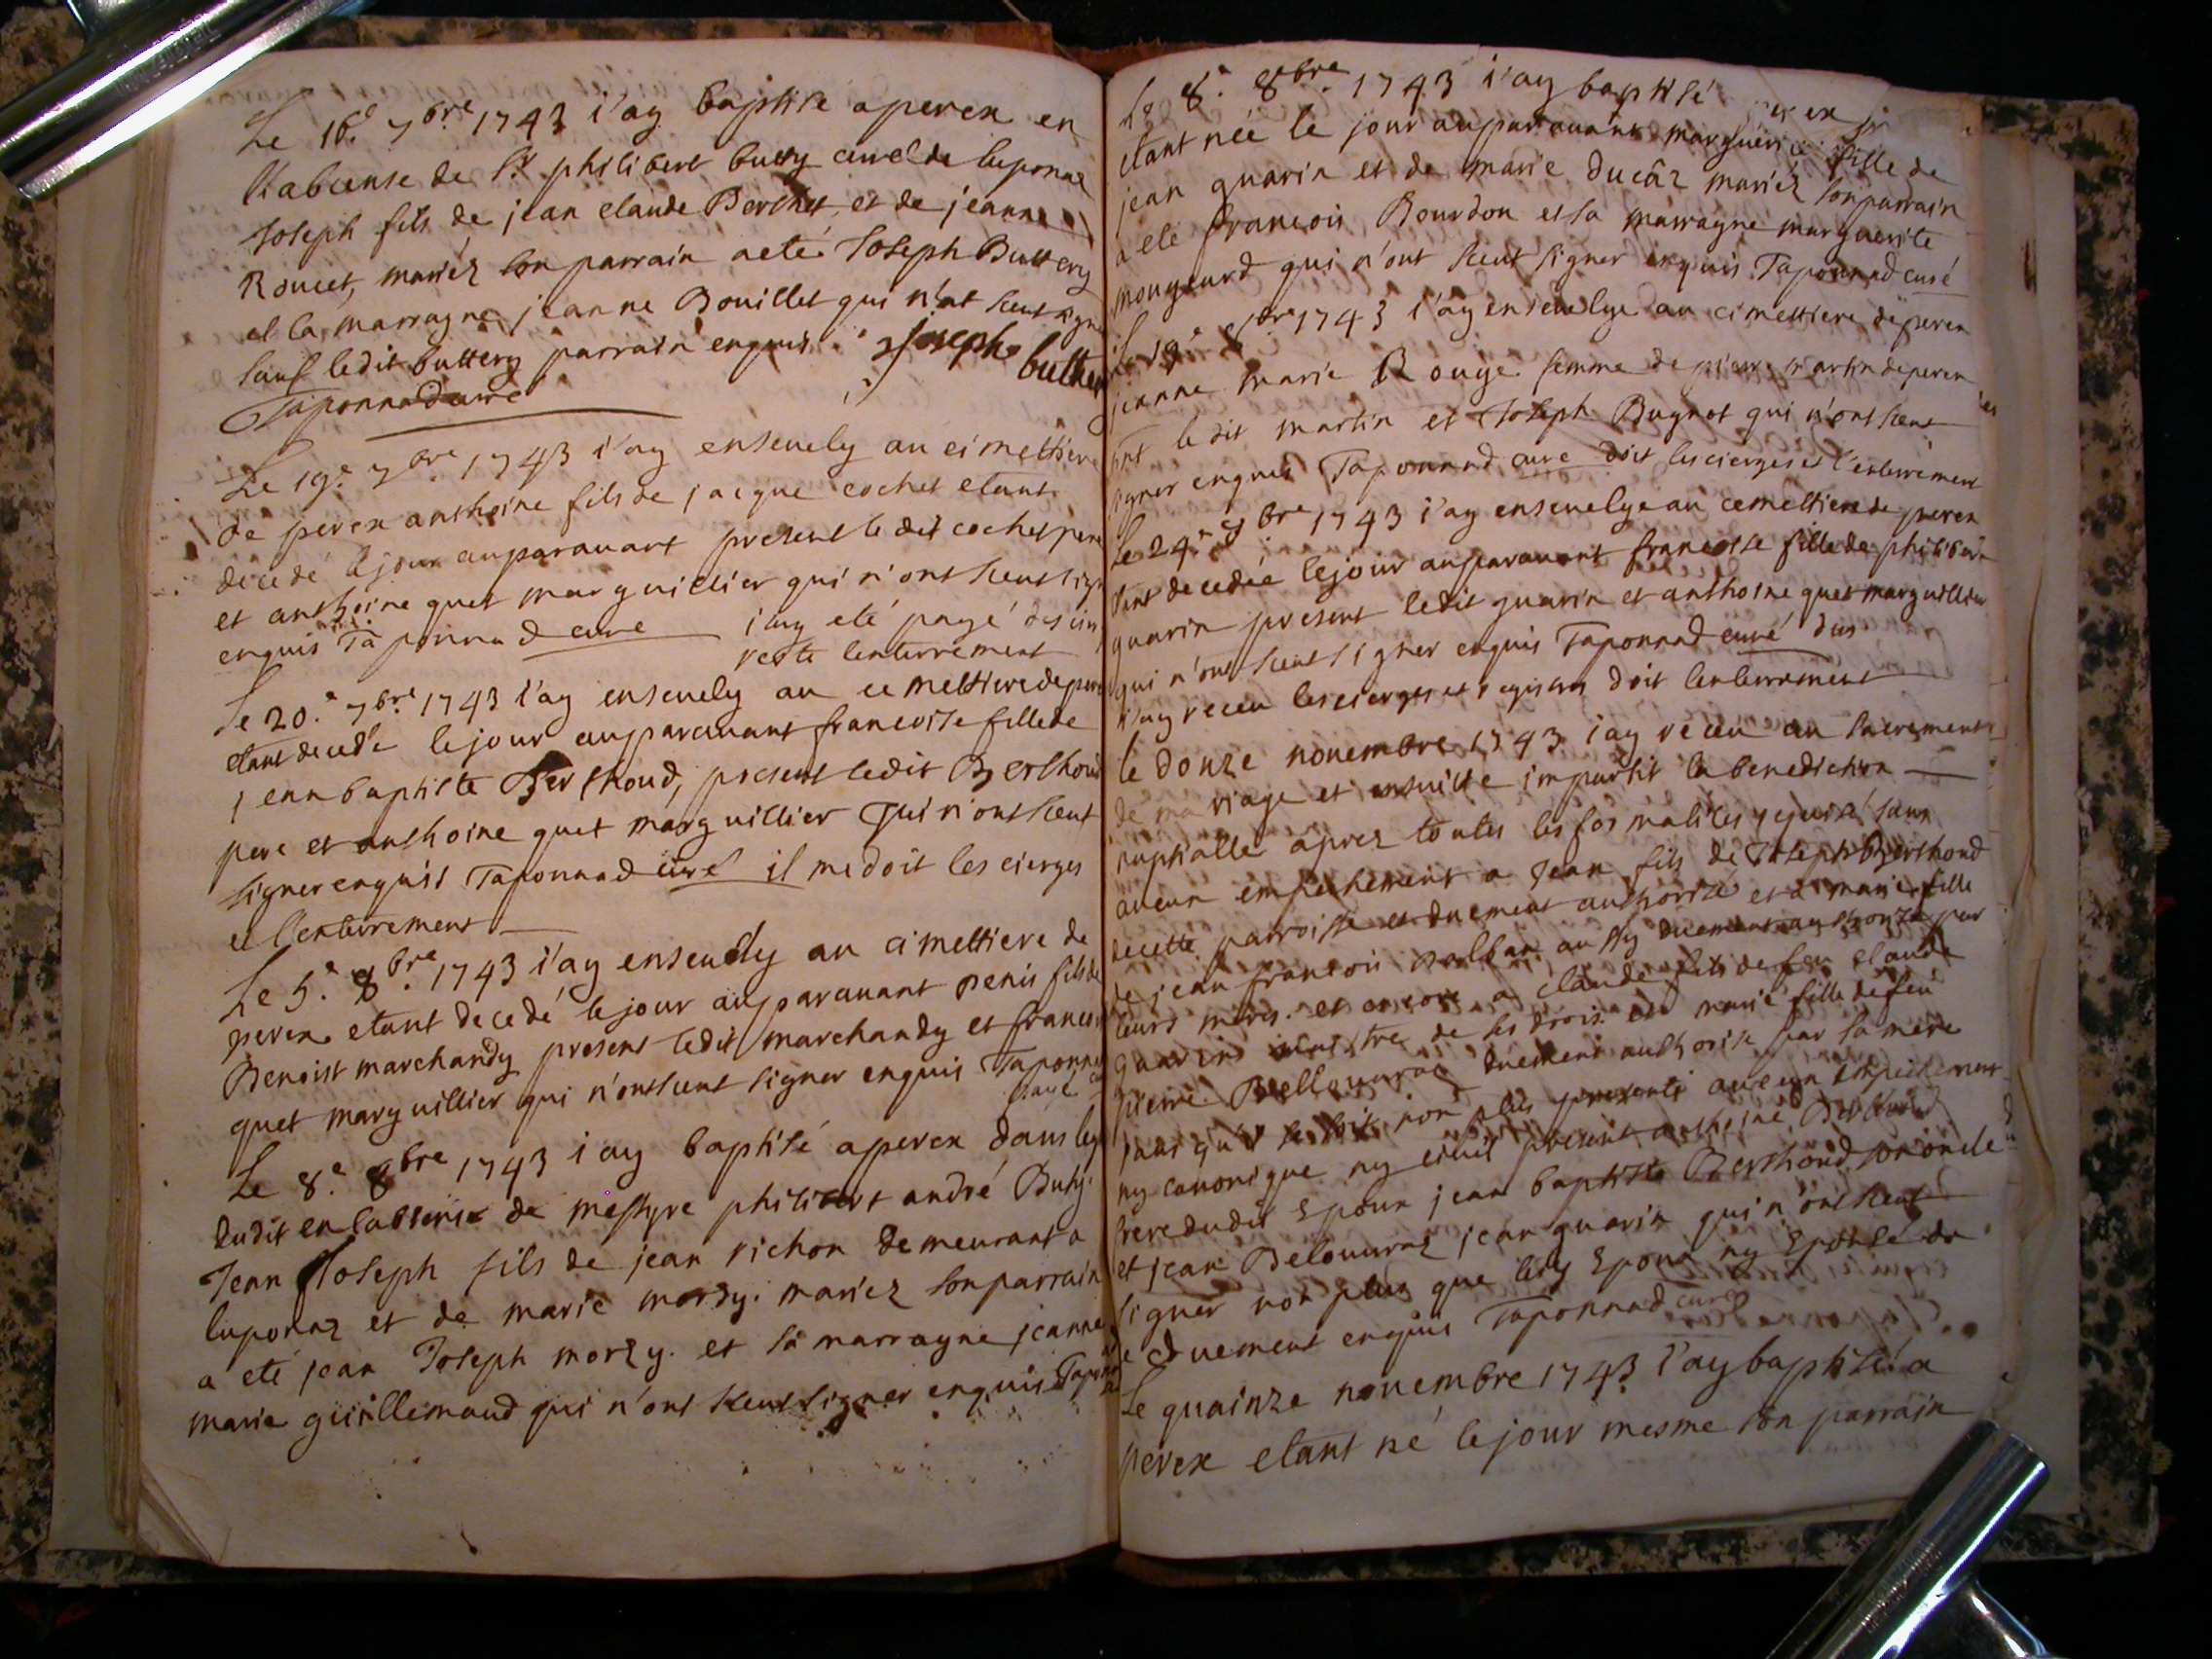 Le 16e 7bre 1743 i'ay baptise a perex en
l'absense de Sr philibert butty curé de luponas
Joseph fils de jean claude Berthet et de jeanne
Roucet, mariéz son parrain a eté Joseph Buttery
et la marragne jeanne Bouillet qui n'ont sceut signe
sauf ledit buttery parrain enquis. Joseph buthe
Taponnad curé
Le 19e 7bre 1743 i'ay ensevely au cimettiere
de perex anthoine fils de jacque cochet etant
décedé le jour auparavant présent le dit cochet pere
et anthoine quet marguillier qui n'ont sceut sign
enquis Taponnad curé i'ay eté payé des
reste l'enterrement
Le 20e 7bre 1743 i'ay ensevely au cemettiere de perex
etant decedé le jour auparavant francoise fille de
jean baptiste Berthoud, present ledit Berthoud
pere et anthoine quet marguillier qui n'ont sceut
signer enquis Taponnad curé il me doit les cierges
et l'enterrement
Le 5e 8bre 1743 i'ay ensevely au cimettiere de
perex etant decedé le jour auparavant Denis fils de
Benoist marchandy présent ledit marchandy et francois
quet marguillier qui n'ont sceut signer enquis Taponna
Le 8e 8bre 1743 i'ay baptisé a perex dans
dudit en l'absense de messyre philibert andré Buty.
Jean Joseph fils de jean richon demeurant a
luponaz et de marie morzy. mariéz son parrain
a eté jean Joseph morzy. et sa marragne jeanne
marie guillemaud qui n'ont sceut signer enquis Tapon
Le 8e 8bre 1743 i'ay baptisé perex
etant née le jour auparavant marguerite fille de
jean guarin et de marie ducâz mariéz son parrain
a eté francois Bourdon et sa marragne marguerite
mongeurd qui n'ont sceut signer enquis Taponnad curé
Le 19e 8bre 1743 i'ay ensevelye au cimettiere de perex
jeanne marie Rouge femme de pierre martin de perex
pnt le dit martin et Joseph Bugnot qui n'ont sceut
signer enquis Taponnad curé doit les cierges et l'enterrement
Le 24e 8bre 1743 i'ay ensevelye au cemettiere de perex
etant decedée le jour auparavant francoise fille de philibert
guarin présent ledit guarin et anthoine quet marguillier
qui n'ont sceut signer enquis Taponnad curé
i'ay receu les cierges et registres doit l'enterrement
le donze novembre 1743 i'ay receu au sacrement
de mariage et ensuitte impartit la benediction
nuptialle aprez toutes les formalités requise sans
aucun empechement a Jean fils de Joseph Berthoud
de cette parroisse et duement authorisé et a marie fille
de jean francois aussy duement authorizé par
leurs meres. et encore a claude fils de feu claude
guarin maistre de ses drois et marie fille de feu
pierre Bellouvraz duement authorise par sa mere
sans qu'il se soit non plus presenté aucun empechement
ny canonique ny civil présent anthoine Berthoud
frere dudit Epoux jean baptiste Berthoud son oncle
et jean Belouvraz jean guarin qui n'ont sceut
signer non plus que les Epoux ny Epouse de
ce duement enquis Taponnad curé
Le quainze novembre 1743 i'ay baptisé a
perex etant né le jour mesme son parrain